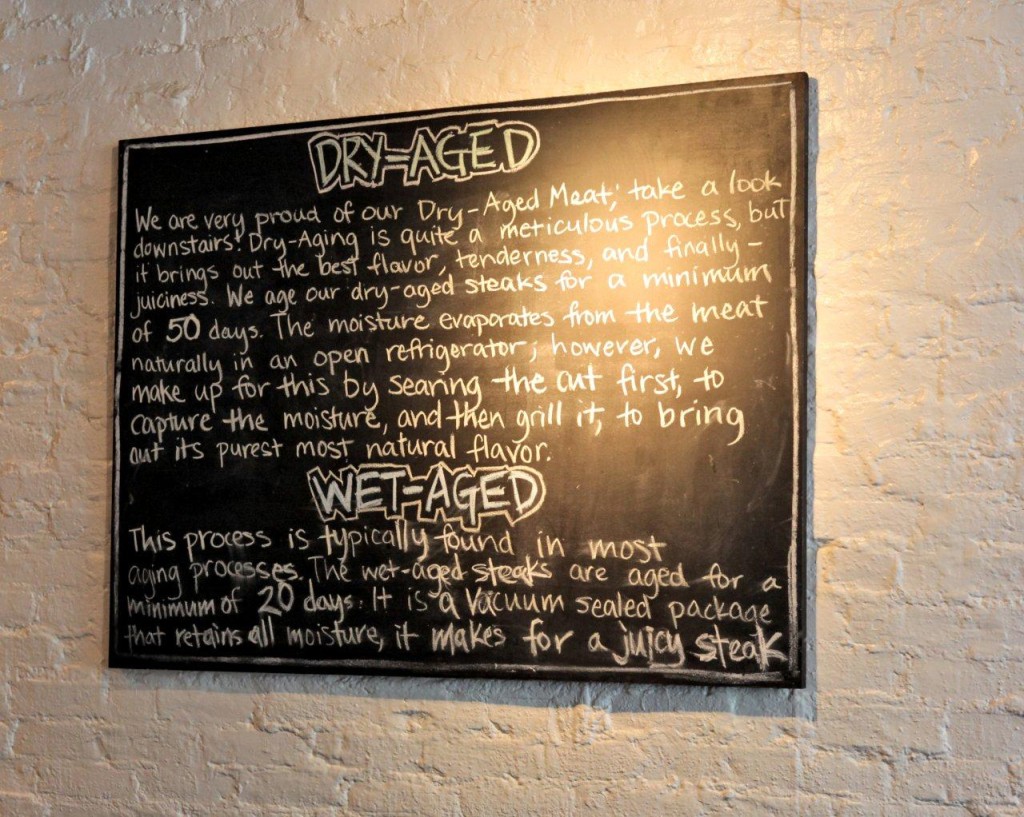 DRY-AGED
We are very proud of our Dry-Aged Meat; take a look
downstairs! Dry-Aging is quite a meticulous process, but
it brings out the best flavor, tenderness, and finally -
juiciness. We age our dry-aged steaks for a minimum
of 50 days. The moisture evaporates from the meat
naturally in an open refrigerator; however, we
make up for this by searing the cut first, to
capture the moisture, and then grill it, to bring
out its purest most natural flavor.
WET-AGED
This process is typically found in most
aging processes. The wet-aged steaks are aged for a
minimum of 20 days. It is a vacuum sealed package
that retains all moisture, it makes for a juicy steak